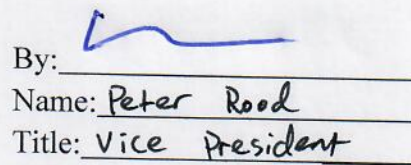 By:
Name: Peter Rood
Title: Vice President